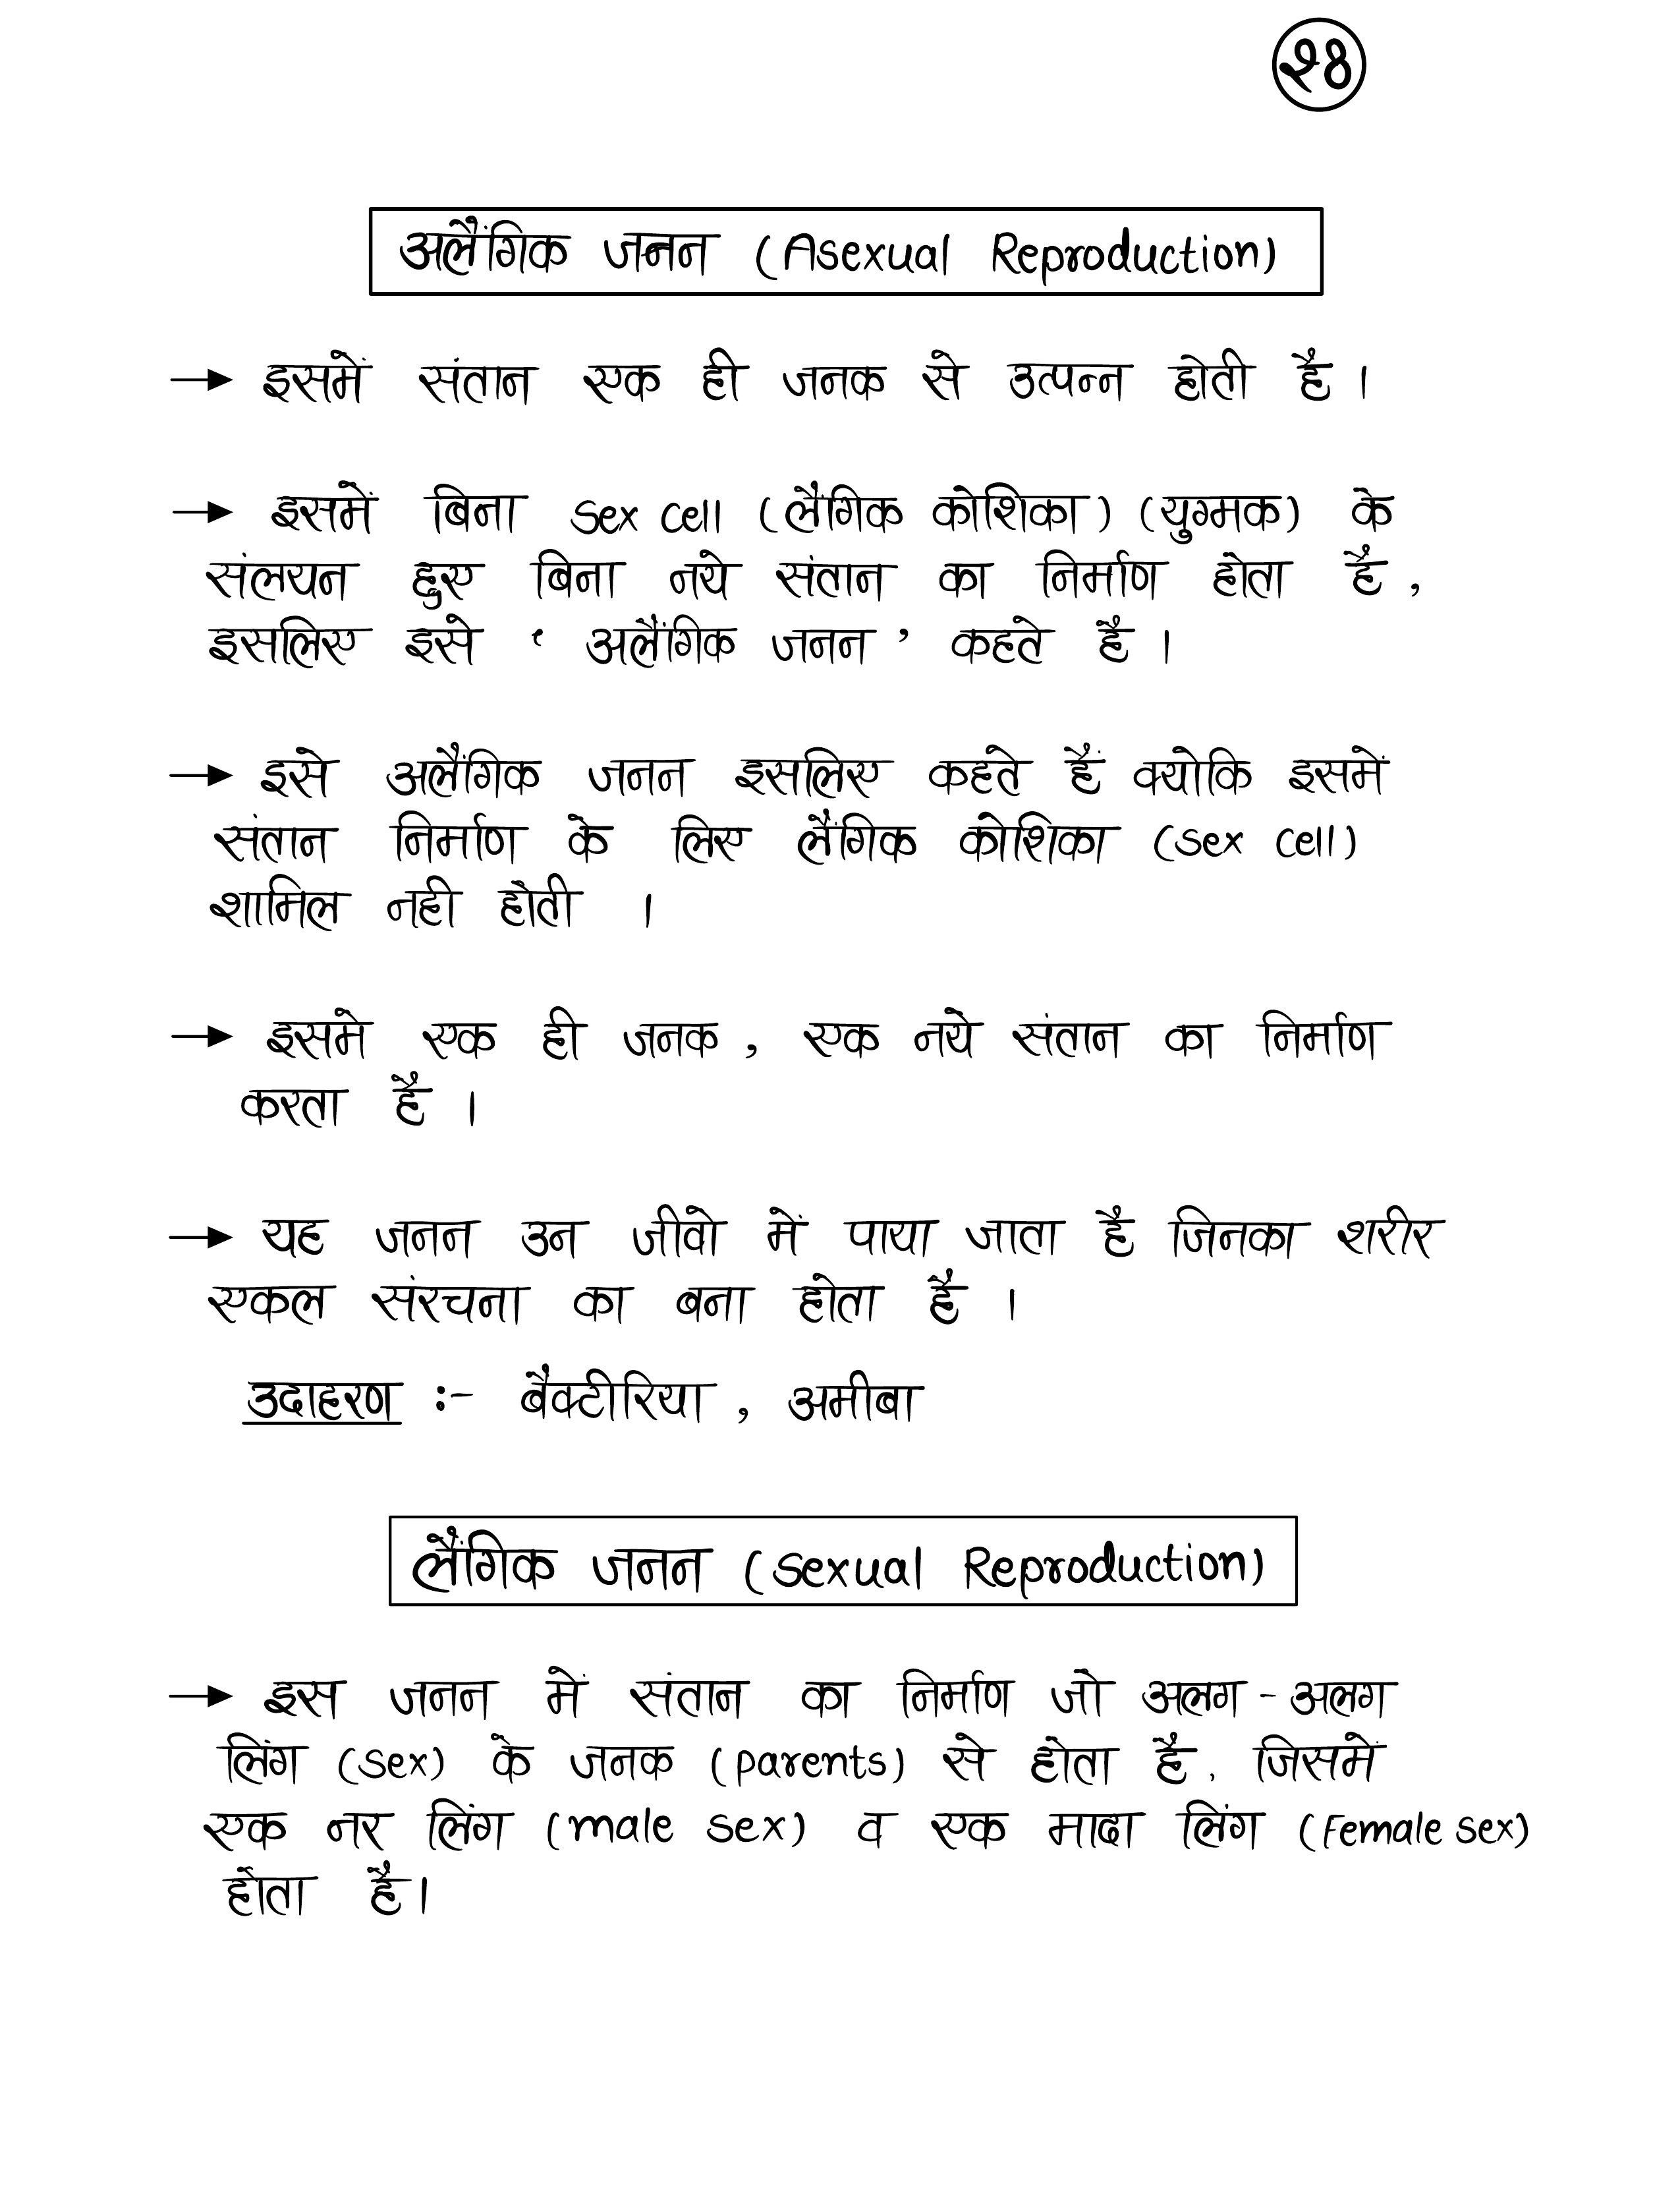 २४
अलैंगिक जनन (Asexual Reproduction)
→ इसमें संतान एक ही जनक से उत्पन्न होती है ।
→ इसमें बिना Sex cell (लैंगिक कोशिका) (युग्मक) के
संलयन हुए बिना नये संतान का निर्माण होता है ,
इसलिए इसे ‘ अलैंगिक जनन ’ कहते है ।
→ इसे अलैंगिक जनन इसलिए कहते हैं क्योकि इसमें
संतान निर्माण के लिए लैंगिक कोशिका (Sex cell)
शामिल नही होती ।
→ इसमे एक ही जनक , एक नये संतान का निर्माण
करता है ।
→ यह जनन उन जीवो में पाया जाता है जिनका शरीर
एकल संरचना का बना होता है ।
उदाहरण :- बैक्टीरिया , अमीबा
लैंगिक जनन (Sexual Reproduction)
→ इस जनन में संतान का निर्माण जो अलग - अलग
लिंग (Sex) के जनक (parents) से होता है, जिसमें
एक नर लिंग (male sex) व एक मादा लिंग (Female sex)
होता है।